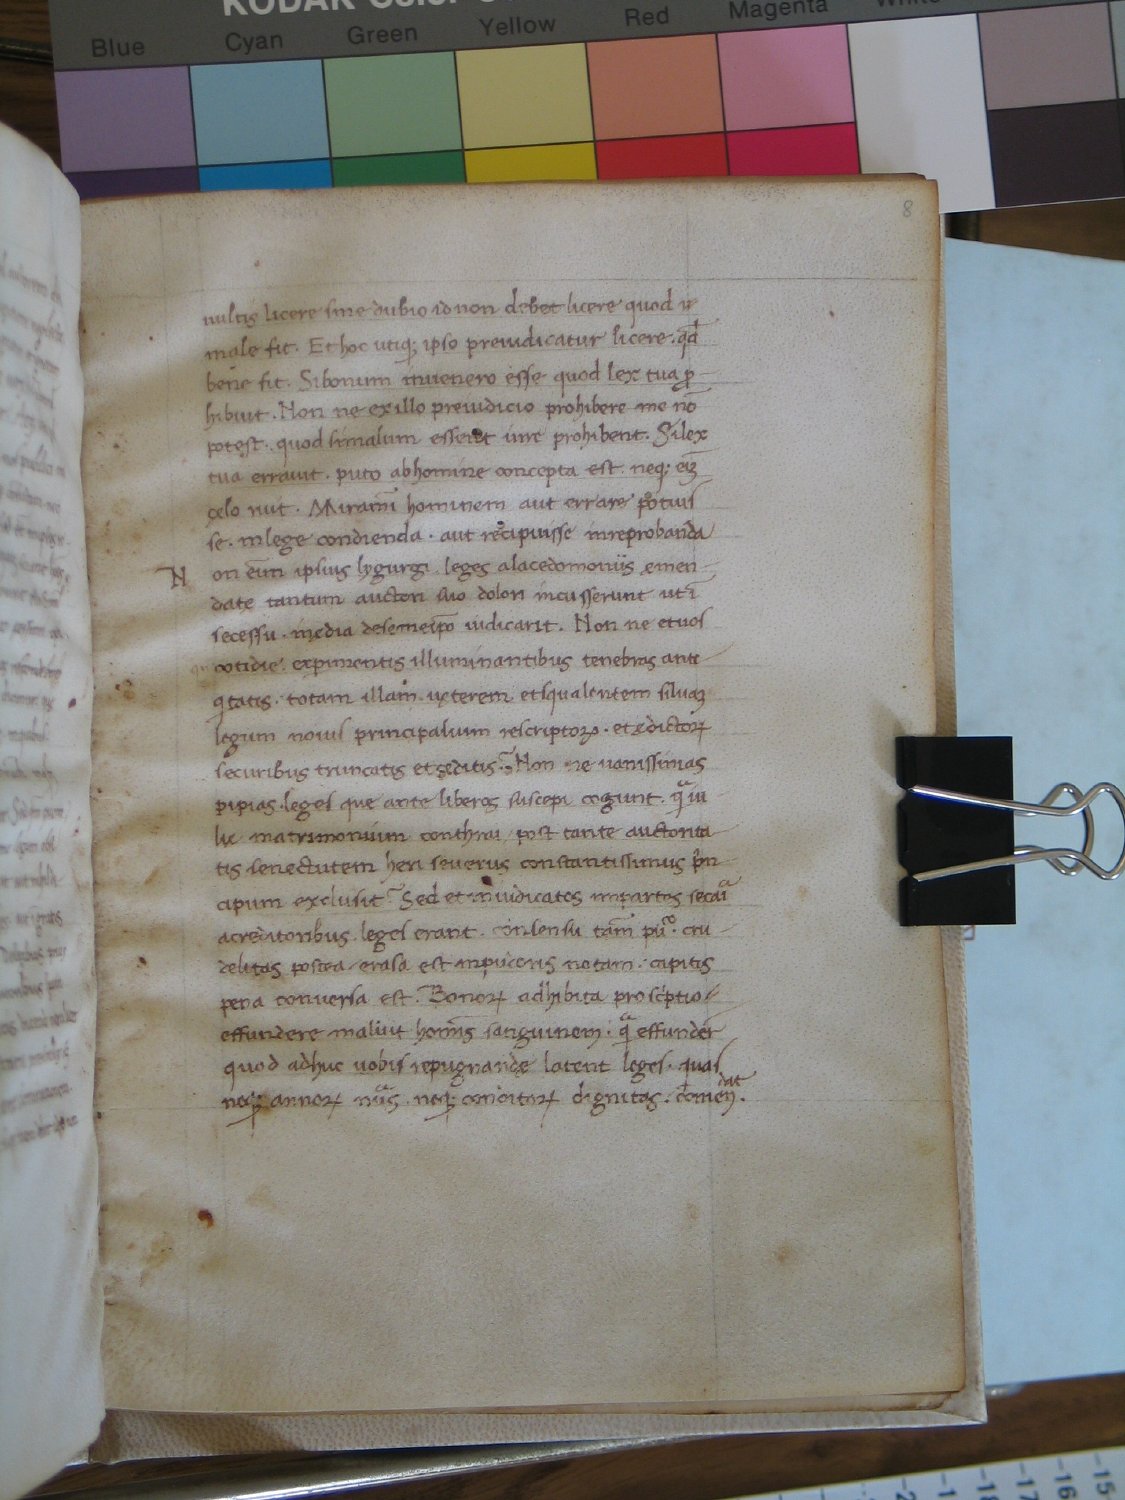 KODAK Color
Blue Cyan Green Yellow Red Magenta White
8
nultis licere sine dubio id non debet licere quod
male fit. Et hoc utiq; ipso preiudicatur licere. qđ
bene fit. Si bonum inuenero esse quod lex tua ꝓ
hibuit. Non ne ex illo preiudicio prohibere me nō
potest. quod si malum esset iure prohiberit. Si lex
tua errauit. puto ab homine concepta est. neq; eī
celo ruit. Miramī hominem aut errare potuis
se. in lege condienda. aut recipuisse inreprobanda
N on eīn ipsius lygurgi. leges alacedomoniis emen
date tantum auctori suo dolori incusserunt ut ī
secessu. media desemeip̄o iudicarit. Non ne et uos
cotidie. experimentis illuminantibus tenebras anti
q̇tatis. totam illam. ueterem et squalentem siluaꝫ
legum nouis principalium rescriptoꝝ. et edictoꝝ
securibus truncatis et ceditis? Non ne uanissimas
pipias. leges que ante liberos suscepi cogunt. qͣ iu
lie matrimonium conthrai. post tante auctorita
tis senectutem heri seuerus constantissimus pͥn
cipum exclusit? Sed et in iuidicatos in partes secari
a creditoribus. leges erant. consensu tam̄ puͦ. cru
delitas postea. erasa est in pudoris notam. capitis
pena conuersa est. Bonoꝝ adhibita proscͥptio
effundere maluit homīs sanguinem. qͣ effundere
quod adhuc uobis repugnande latent leges. quas
neq; annoꝝ nūs. neq; conditoꝝ dignitas. cōmen
dat.